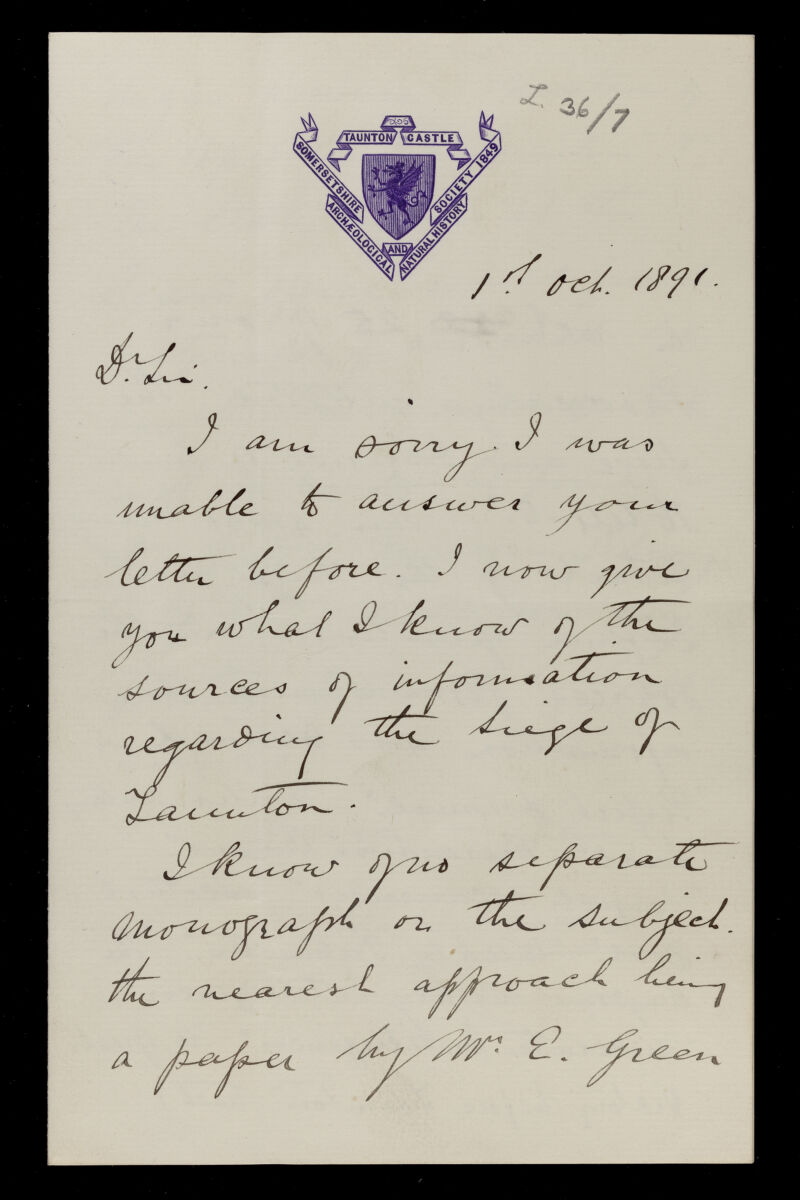 L. 36/7
TAUNTON CASTLE
SOMERSETSHIRE
ARCHÆOLOGICAL
AND
NATURAL HISTORY
SOCIETY 1849
1st Oct. 1891.
Dr. Sir.
I am sorry I was
unable to answer your
letter before. I now give
you what I know of the
sources of information
regarding the siege of
Taunton.
I know of no separate
monograph on the subject.
the nearest approach being
a paper by Mr. E. Green